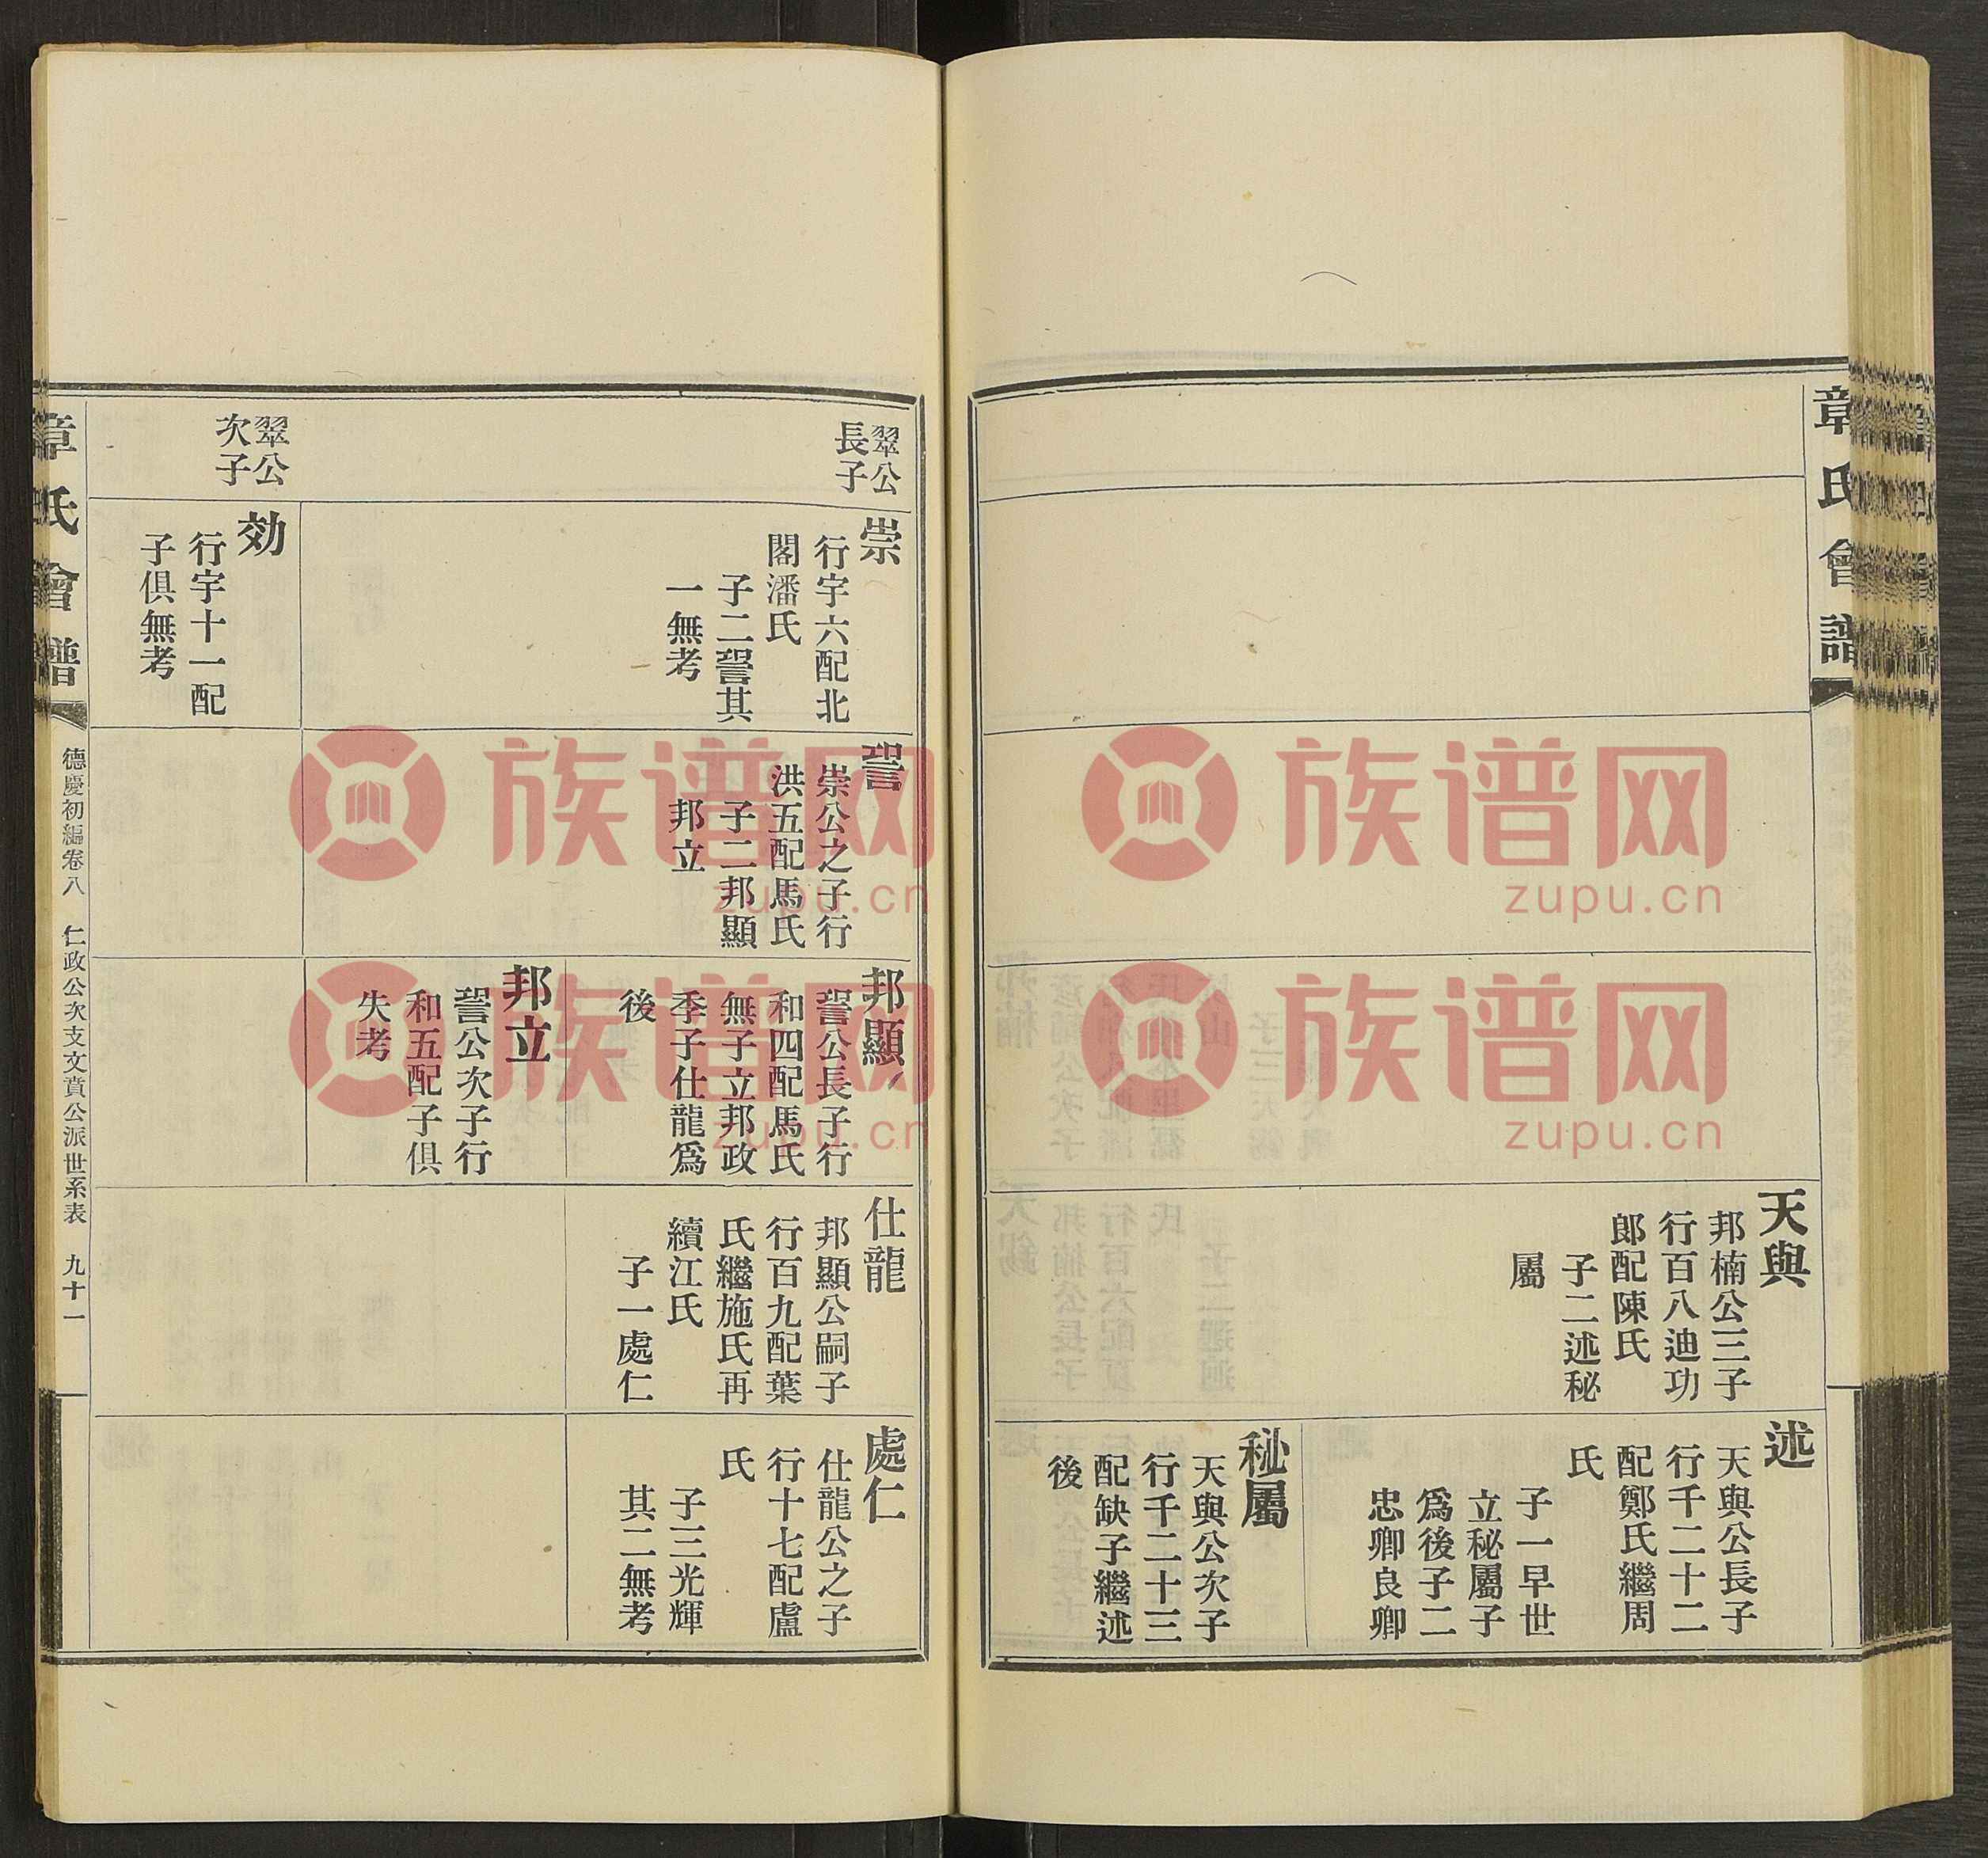 章氏會譜
天與
邦楠公三子
行百八迪功
郎配陳氏
子二述秘
屬
述
天與公長子
行千二十二
配鄭氏繼周
氏
子一早世
立秘屬子
爲後子二
忠卿良卿
秘屬
天與公次子
行千二十三
配缺子繼述
後
翠公
長子
崇
行宇六配北
閣潘氏
子二詧其
一無考
崇公之子行
洪五配馬氏
子二邦顯
邦立
邦顯
公長子行
和四配馬氏
無子立邦政
季子仕龍爲
後
邦立
公次子行
和五配子俱
失考
仕龍
邦顯公嗣子
行百九配葉
氏繼施氏再
續江氏
子一處仁
處仁
仕龍公之子
行十七配盧
氏
子三光輝
其二無考
翠公
次子
効
行宇十一配
子俱無考
章氏會譜
德慶初編卷八 仁政公次支文賁公派世系表 九十一
族谱网
zupu.cn
族谱网
zupu.cn
族谱网
zupu.cn
族谱网
zupu.cn